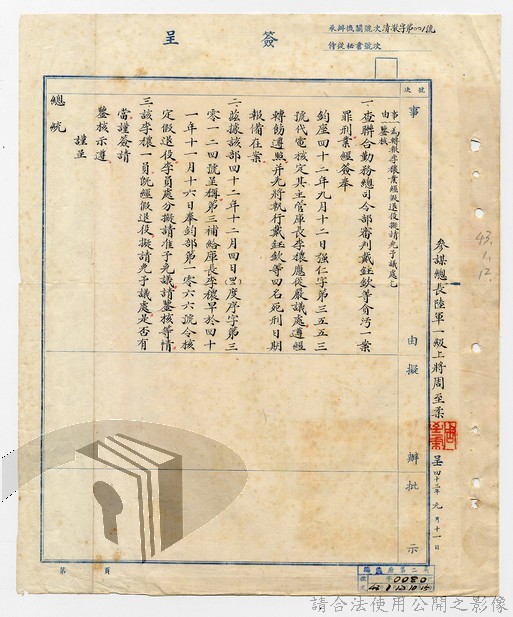 承辦機關號次清澈字第001號
侍從秘書號次
簽呈
號次
事由擬辦批示
事由：為轉報李穰業經假退役擬請免予議處乞鑒核
一、查聯合勤務總司令部審判戴鈺欽等貪污一案
罪刑業經簽奉
鈞座四十二年九月十二日強仁字第三五五三
號代電核定其主管庫長李穰應從嚴議處遵經
轉飭遵照并先將執行戴鈺欽等四名死刑日期
報備在案
二、茲據該部四十二年十二月四日度序字第三
零一二四號呈稱第三補給庫長李穰早於四十
一年十一月十六日奉鈞部第一零六六號令核
定假退役李員處分擬請准予免議請鑒核等情
三、該李穰一員既經假退役擬請免予議處是否有
當謹簽請
鑒核示遵
謹呈
總統
參謀總長陸軍一級上將周至柔
呈四十三年元月十一日
43.1.12
第 頁
0080
請合法使用公開之影像